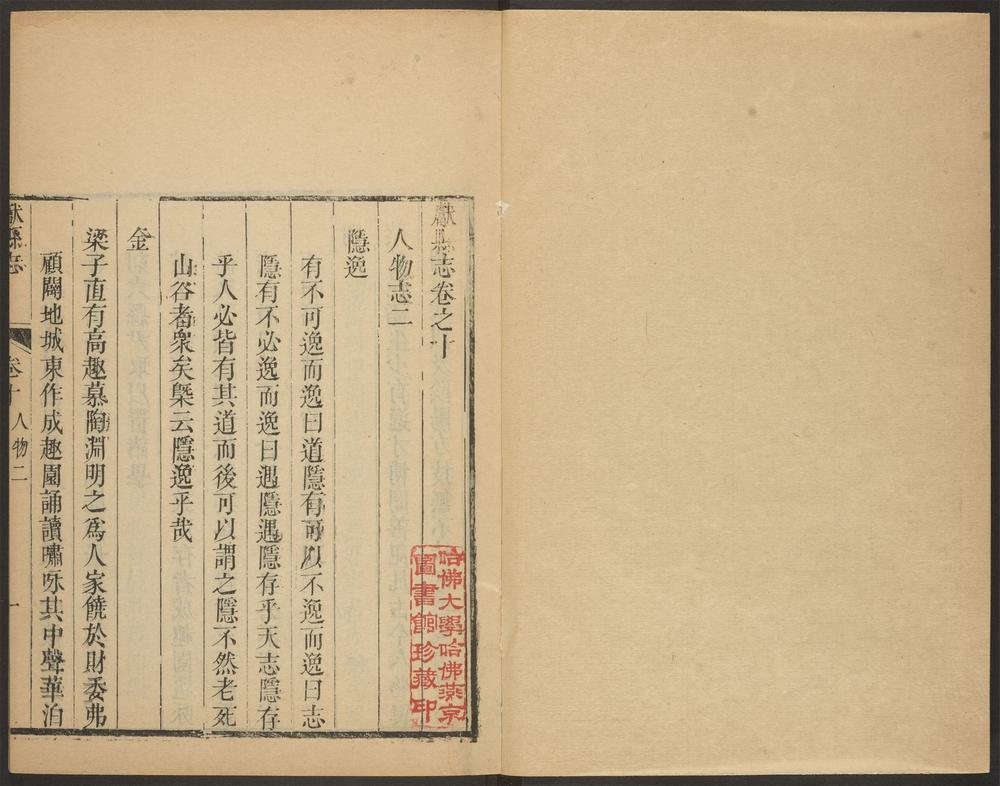 獻縣志卷之十
人物志二
隱逸
有不可逸而逸曰道隱有可以不逸而逸曰志
隱有不必逸而逸曰遇隱遇隱存乎天志隱存
乎人必皆有其道而後可以謂之隱不然老死
山谷者衆矣槩云隱逸乎哉
金
梁子直有高趣慕陶淵明之爲人家饒於財委弗
顧闢地城東作成趣園誦讀嘯咏其中聲華泊
獻縣志
卷十
人物二
一
哈佛大學哈佛燕京
圖書館珍藏印